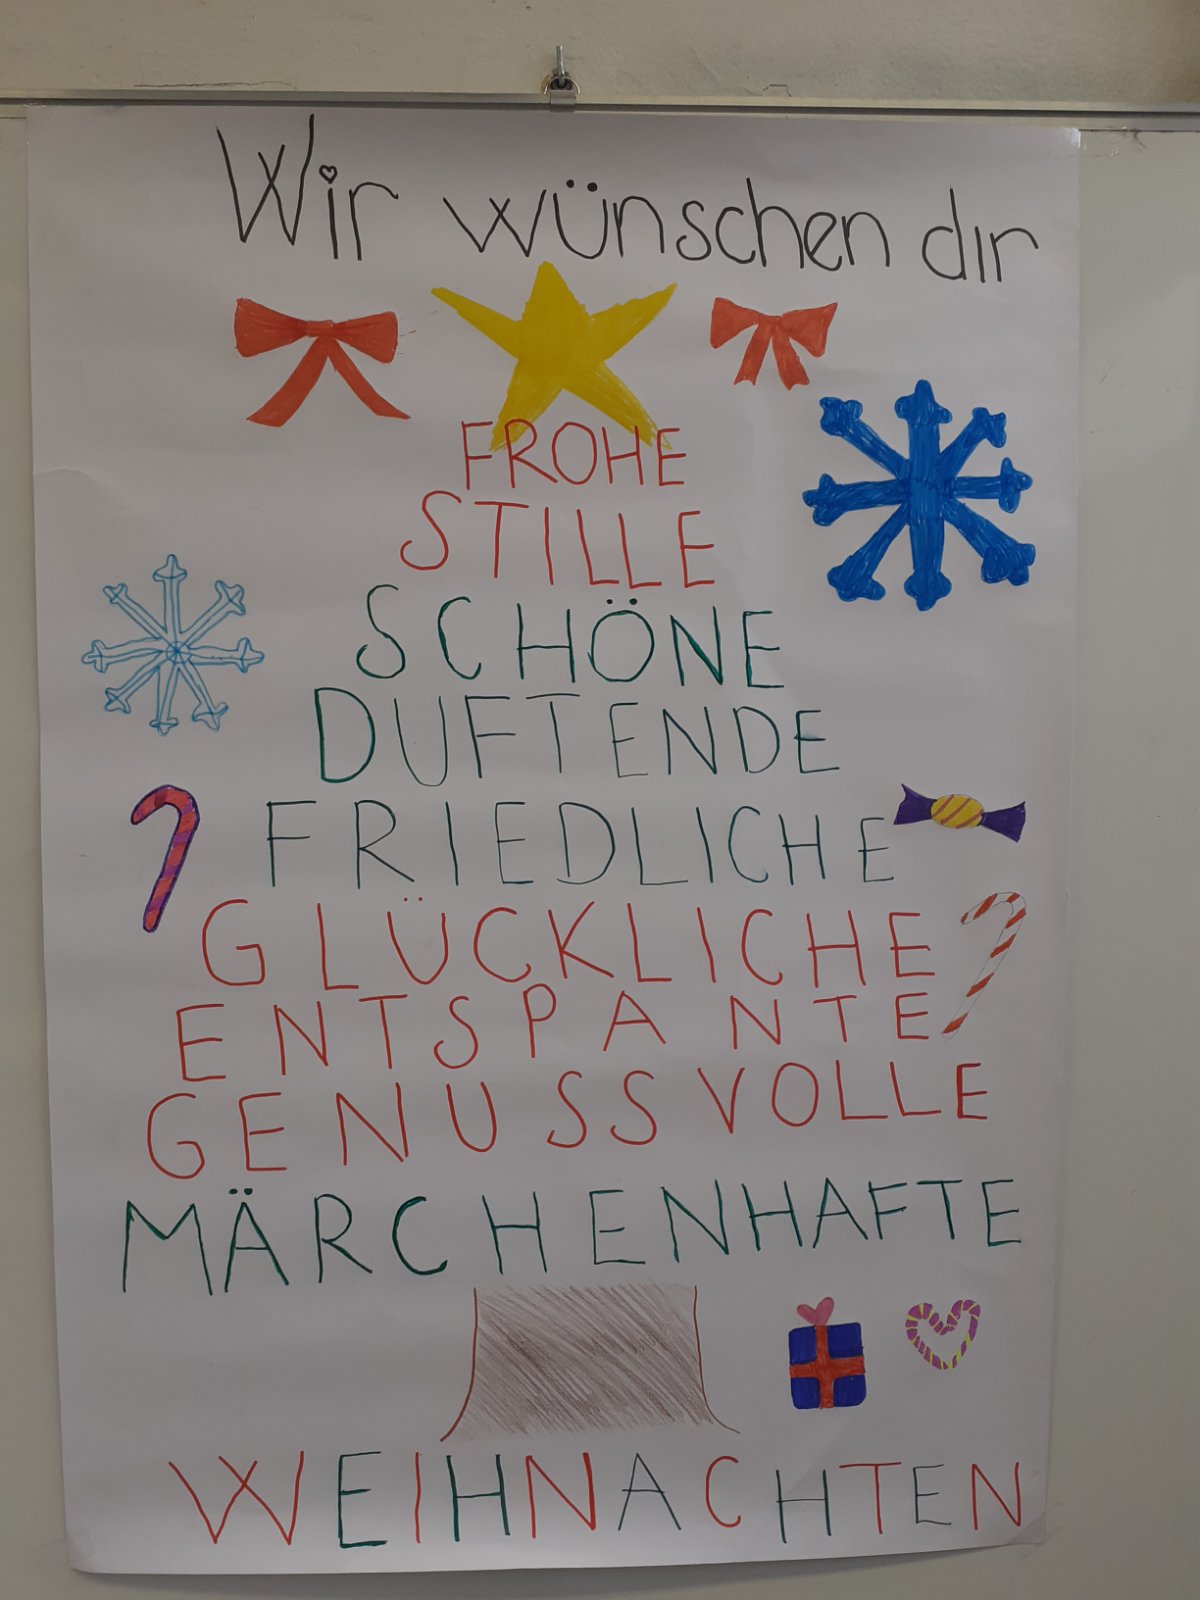 Wir wünschen dir
FROHE
STILLE
SCHÖNE
DUFTENDE
FRIEDLICHE
GLÜCKLICHE
ENTSPANTE
GENUSSVOLLE
MÄRCHENHAFTE
WEIHNACHTEN